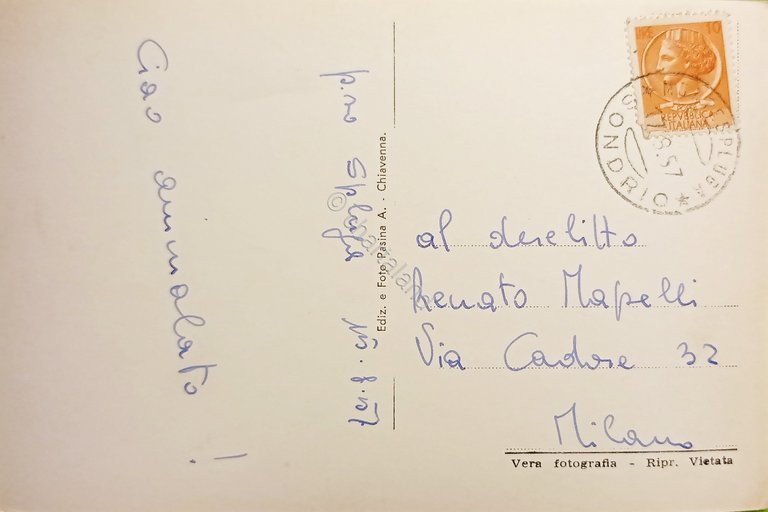 Ciao ammalato!
p.sso Spluga 15.8.57
Ediz. e Foto Pasina A. - Chiavenna.
al derelitto
Renato Mapelli
Via Cadore 32
Milano
Vera fotografia - Ripr. Vietata
10
REPVBBLICA
ITALIANA
SPLUGA
8.57
SONDRIO